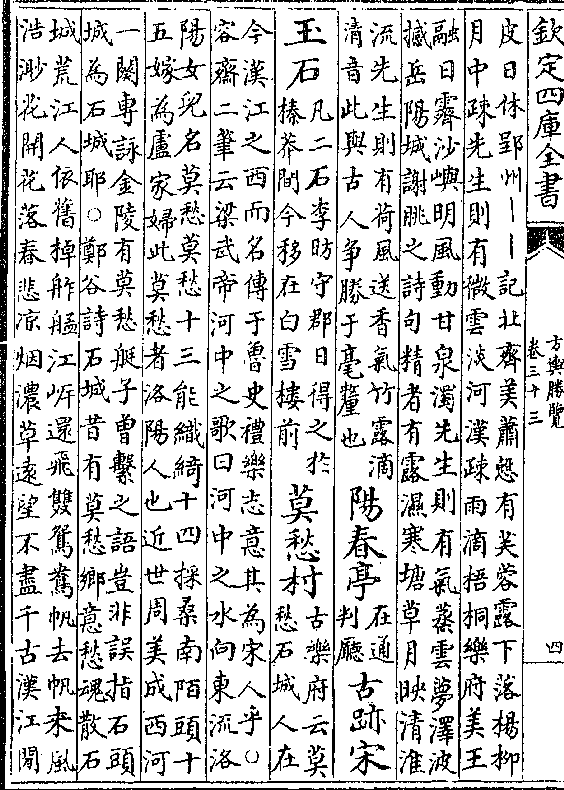 欽定四庫全書
方輿勝覽
卷三十三
四
皮日休郢州丨丨記北齊美蕭慤有芙蓉露下落楊柳
月中疎先生則有微雲淡河漢疎雨滴梧桐樂府美王
融日霽沙嶼明風動甘泉濁先生則有氣蒸雲夢澤波
撼岳陽城謝朓之詩句精者有露濕寒塘草月映清淮
流先生則有荷風送香氣竹露滴
清音此與古人爭勝于毫釐也
陽春亭
在通
判廳
古跡宋
玉石
凡二石李昉守郡日得之於
榛莽間今移在白雪樓前
莫愁村
古樂府云莫
愁石城人在
今漢江之西而名傳于魯史禮樂志意其為宋人乎○
容齋二筆云梁武帝河中之歌曰河中之水向東流洛
陽女兒名莫愁莫愁十三能織綺十四採桑南陌頭十
五嫁為盧家婦此莫愁者洛陽人也近世周美成西河
一闋專詠金陵有莫愁艇子曾繫之語豈非誤指石頭
城為石城耶○鄭谷詩石城昔有莫愁鄉意愁魂散石
城荒江人依舊棹舴艋江岸還飛雙鴛鴦帆去帆來風
浩渺花開花落春悲凉烟濃草遠望不盡千古漢江閒